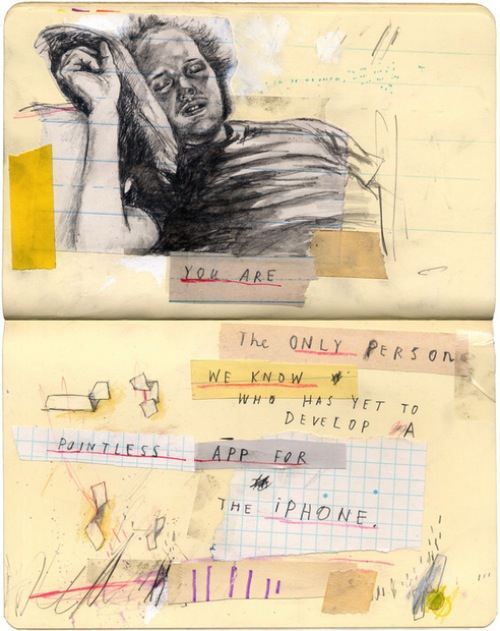 YOU ARE
The ONLY PERSON
WE KNOW
WHO HAS YET TO
DEVELOP A
POINTLESS APP FOR
THE iPHONE.